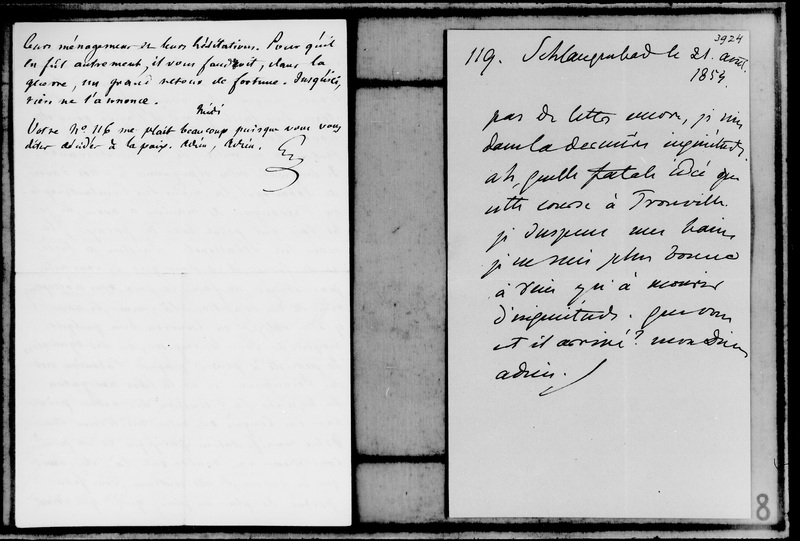 leurs ménagemens de leurs hésitations. Pour qu'il
en fût autrement, il vous faudroit, dans la
guerre, un grand retour de fortune. Jusqu'ici,
rien ne l'annonce.
Midi
Votre No 116 me plait beaucoup puisque vous vous
dites décidée à la paix. Adieu, Adieu.
3924
119. Schlangenbad le 21. août
1854.
pas de lettre encore, je suis
dans la dernière inquiétude.
ah, quelle fatale idée que
cette course à Trouville.
je suspens mes bains,
je ne suis plus bonne
à rien qu'à mourir
d'inquiétude. que vous
est il arrivé? mon Dieu
adieu.
8